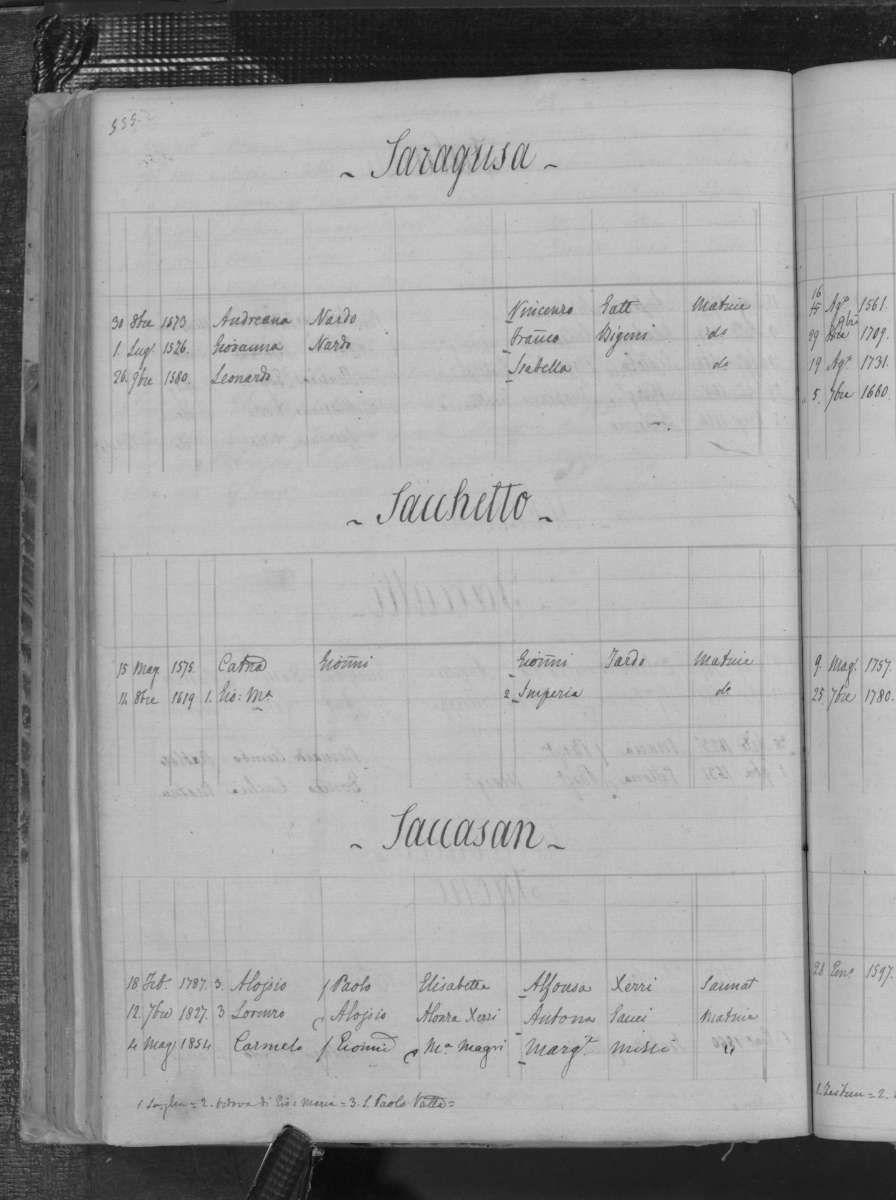 555.
~ Saragusa ~
30 8bre 1573 Andreana Nardo Vincenzo Gatt Matrice
1. Lugl. 1526. Giovanna Nardo Franco Bigeni do
26. 9bre 1580. Leonardo Isabella do
~ Sacchetto ~
15 Mag 1575. Catna Gionni Gionni Tardo Matrice
11. 8bre 1619 1. Gio: Ma 2 Imperia do
~ Saccasan ~
18 Feb. 1787. 3. Aloisio Paolo Elisabetta Alfonsa Xerri Sannat
12. 7bre 1827. 3 Lorenzo Aloisio Xerri Antona Matrice
4 Mag 1854. Carmelo Ma Magri Margt
2. 3. S. Paolo
16
Ago 1561.
29 9bre 1709.
19 Ago 1731.
5. 7bre 1660.
9. Mag. 1757.
25 7bre 1780.
28 Geno 1597.